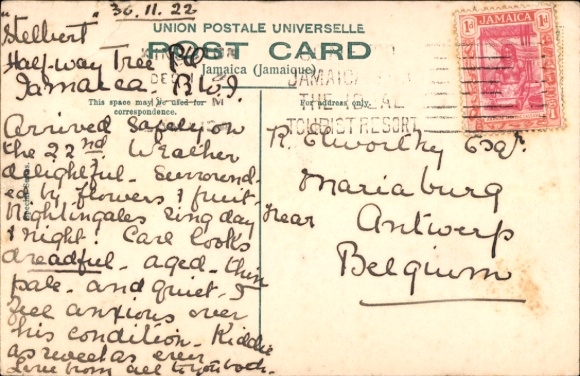 30.11.22
"Stelbert"
Half-way Tree P.O
Jamaica. B.W.I.
UNION POSTALE UNIVERSELLE
POST CARD
Jamaica (Jamaique)
This space may be used for
correspondence.
For address only.
Arrived safely on
the 22nd. Weather
delightful. Surround-
ed by flowers & fruit.
Nightingales sing day
& night! Carl looks
dreadful. aged. thin
pale. and quiet. I
feel anxious over
his condition. Kiddie
as sweet as ever
Love from all to you both.
R. Elworthy Esqr.
Mariaburg
near Antwerp
Belgium
JAMAICA
1d 1d
KINGSTON
DEC 1
JAMAICA
THE IDEAL
TOURIST RESORT